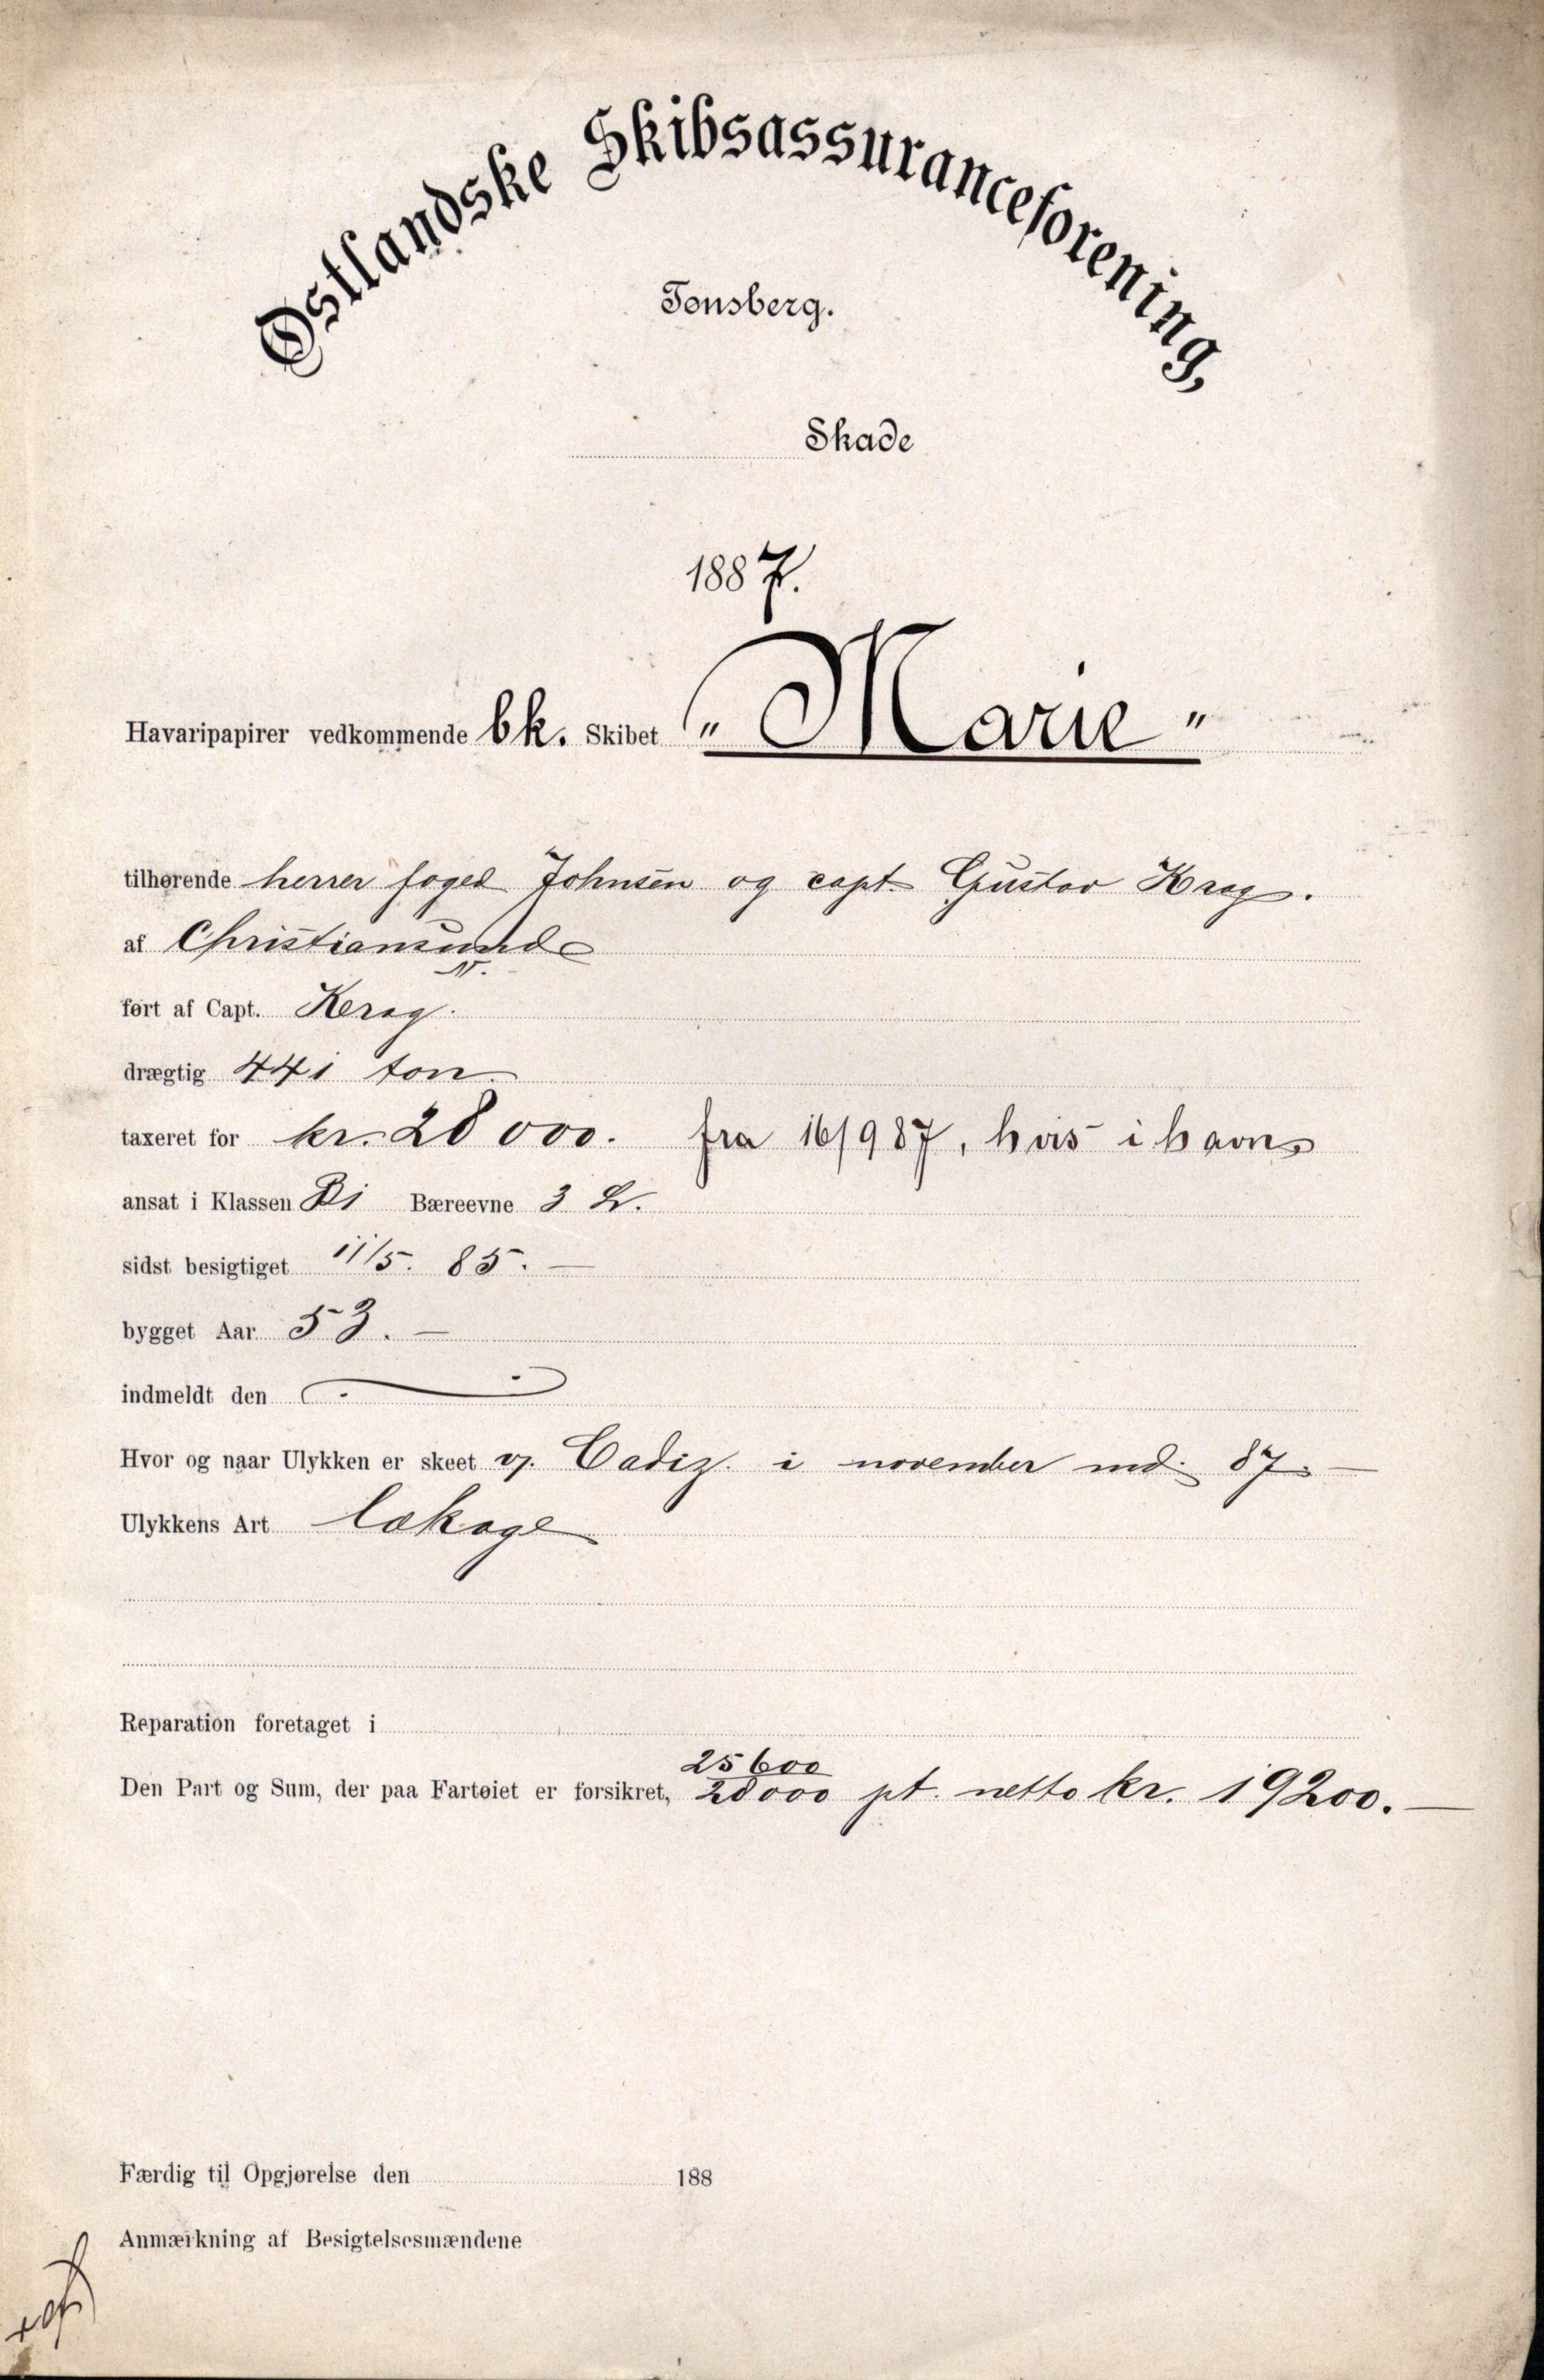 Østlandske Skibsassuranceforening,
Tønsberg.
Skade
1887.
Havaripapirer vedkommende bk. Skibet „Marie"
tilhørende herrer foged Johnsen og capt. Gustav Krag.
af Christiansund
N.
ført af Capt. Krag.
drægtig 441 ton
taxeret for kr. 28000. fra 16/9 87, hvis i havn
ansat i Klassen B1 Bæreevne 3
sidst besigtiget 11/5. 85. —
bygget Aar 53. —
indmeldt den
Hvor og naar Ulykken er skeet v. Cadiz. i november md. 87. —
Ulykkens Art lækage
Reparation foretaget i
25600
Den Part og Sum, der paa Fartøiet er forsikret, 28000 pt. netto kr. 19200. —
Færdig til Opgjørelse den 188
Anmærkning af Besigtelsesmændene